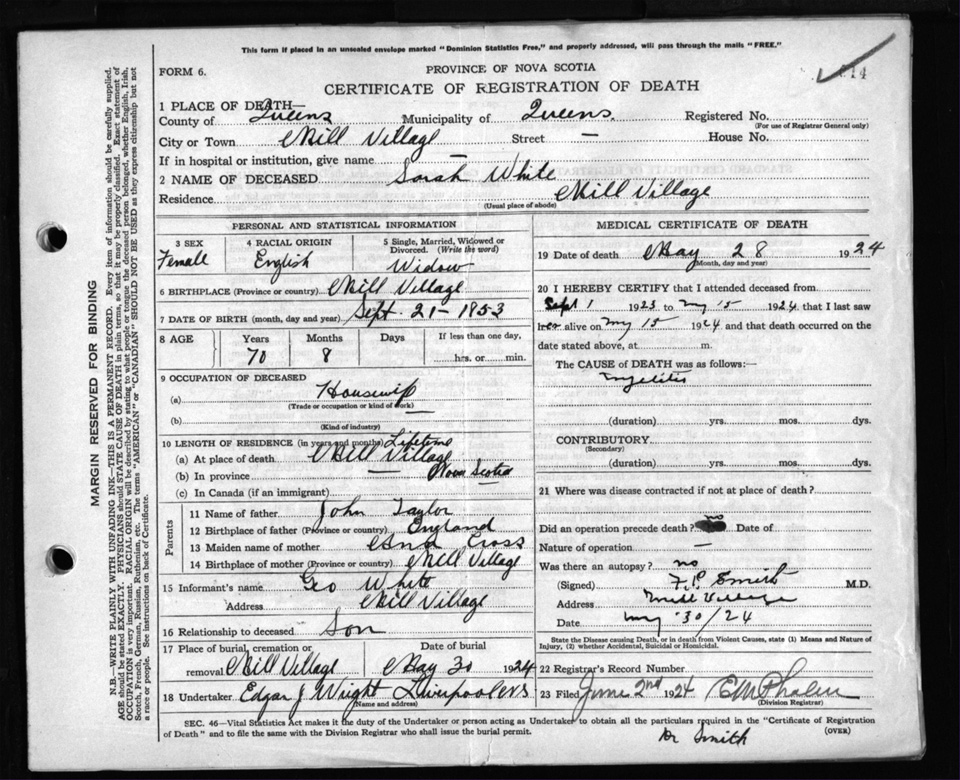 This form if placed in an unsealed envelope marked "Dominion Statistics Free," and properly addressed, will pass through the mails "FREE."
FORM 6.
PROVINCE OF NOVA SCOTIA
14
CERTIFICATE OF REGISTRATION OF DEATH
1 PLACE OF DEATH—
County of Queens Municipality of Queens. Registered No.
(For use of Registrar General only)
City or Town Mill Village Street — House No.
If in hospital or institution, give name —
2 NAME OF DECEASED Sarah White
Residence Mill Village
(Usual place of abode)
PERSONAL AND STATISTICAL INFORMATION
3 SEX Female
4 RACIAL ORIGIN English
5 Single, Married, Widowed or Divorced. (Write the word) Widow
6 BIRTHPLACE (Province or country) Mill Village
7 DATE OF BIRTH (month, day and year) Sept. 21 - 1853
8 AGE Years 70 Months 8 Days If less than one day, hrs. or min.
9 OCCUPATION OF DECEASED
(a) Housewife
(Trade or occupation or kind of work)
(b)
(Kind of industry)
10 LENGTH OF RESIDENCE (in years and months) Lifetime
(a) At place of death Mill Village
(b) In province — Nova Scotia
(c) In Canada (if an immigrant)
Parents
11 Name of father John Taylor
12 Birthplace of father (Province or country) England
13 Maiden name of mother Ana Cross
14 Birthplace of mother (Province or country) Mill Village
15 Informant's name Geo White
Address Mill Village
16 Relationship to deceased Son
17 Place of burial, cremation or removal Mill Village Date of burial May 30 1924
18 Undertaker Edgar J Wright Liverpool N S
(Name and address)
MEDICAL CERTIFICATE OF DEATH
19 Date of death May 28 1924
(Month, day and year)
20 I HEREBY CERTIFY that I attended deceased from
Sept 1 1923 to My 15 1924 that I last saw
her alive on My 15 1924 and that death occurred on the
date stated above, at m.
The CAUSE of DEATH was as follows:—
Myelitis
(duration) yrs. mos. dys.
CONTRIBUTORY
(Secondary)
(duration) yrs. mos. dys.
21 Where was disease contracted if not at place of death?
Did an operation precede death? no Date of
Nature of operation —
Was there an autopsy? no
(Signed) F. P. Smith M.D.
Address Mill Village
Date My 30/24
State the Disease causing Death, or in death from Violent Causes, state (1) Means and Nature of Injury, (2) whether Accidental, Suicidal or Homicidal.
22 Registrar's Record Number
23 Filed June 2nd 1924 E M Phalen
(Division Registrar)
SEC. 46—Vital Statistics Act makes it the duty of the Undertaker or person acting as Undertaker to obtain all the particulars required in the "Certificate of Registration
of Death" and to file the same with the Division Registrar who shall issue the burial permit.
(OVER)
Dr Smith
MARGIN RESERVED FOR BINDING
N.B.—WRITE PLAINLY WITH UNFADING INK—THIS IS A PERMANENT RECORD. Every item of information should be carefully supplied.
AGE should be stated EXACTLY. PHYSICIANS should STATE CAUSE OF DEATH in plain terms, so that it may be properly classified. Exact statement of
OCCUPATION is very important. RACIAL ORIGIN will be described by stating to what people or tongue the deceased person belonged, whether English, Irish,
Scotch, French, German, Russian, Ruthenian, etc. The terms "AMERICAN" or "CANADIAN" SHOULD NOT BE USED as they express citizenship but not
a race or people. See instructions on back of Certificate.